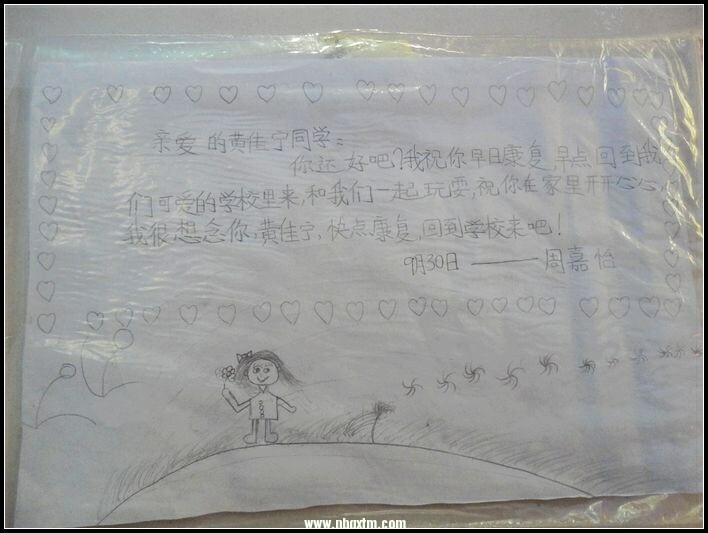 亲爱的黄佳宁同学：
你还好吧？我祝你早日康复，早点回到我
们可爱的学校里来，和我们一起玩耍，祝你在家里开开心心，
我很想念你，黄佳宁，快点康复，回到学校来吧！
9月30日 ——— 周嘉怡
www.nbqxtm.com